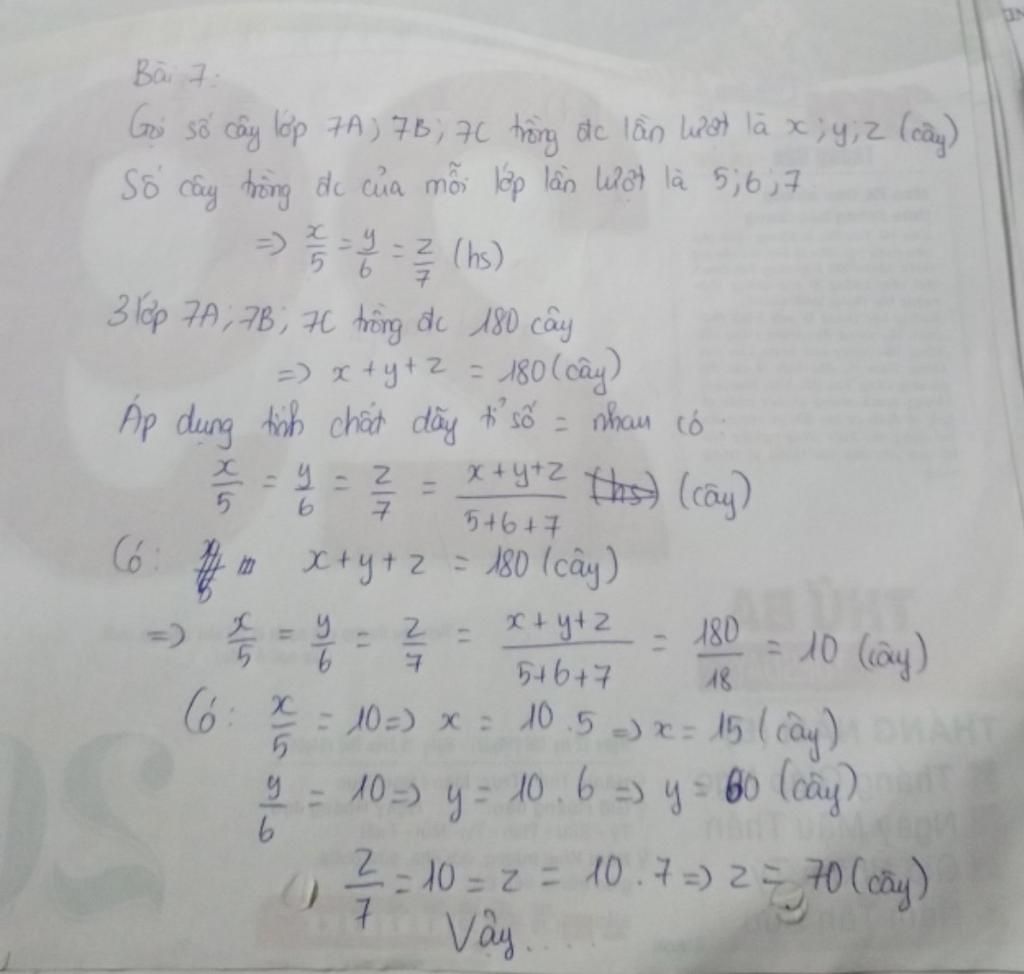 Bài 7:
Gọi số cây lớp 7A; 7B; 7C trồng đc lần lượt là x; y; z (cây)
Số cây trồng đc của mỗi lớp lần lượt là 5; 6; 7
=> x/5 = y/6 = z/7 (hs)
3 lớp 7A; 7B; 7C trồng đc 180 cây
=> x + y + z = 180 (cây)
Áp dụng tính chất dãy tỉ số = nhau có:
x/5 = y/6 = z/7 = (x+y+z)/(5+6+7) (hs) (cây)
Có: x + y + z = 180 (cây)
=> x/5 = y/6 = z/7 = (x+y+z)/(5+6+7) = 180/18 = 10 (cây)
Có: x/5 = 10 => x = 10 . 5 => x = 15 (cây)
y/6 = 10 => y = 10 . 6 => y = 60 (cây)
z/7 = 10 = z = 10 . 7 => z = 70 (cây)
Vậy.....
THỨ BA